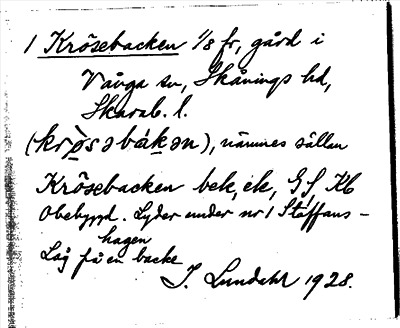 1 Krösebacken 1/8 fr, gård i
Vånga sn, Skånings hd,
Skarab. l.
(krö̀sǝbákǝn), nämnes sällan
Krösebacken bek, ek, GS, Kb
Obebyggd. Lyder under nr 1 Staffans-
hagen
Låg på en backe
J. Lundahl 1928.